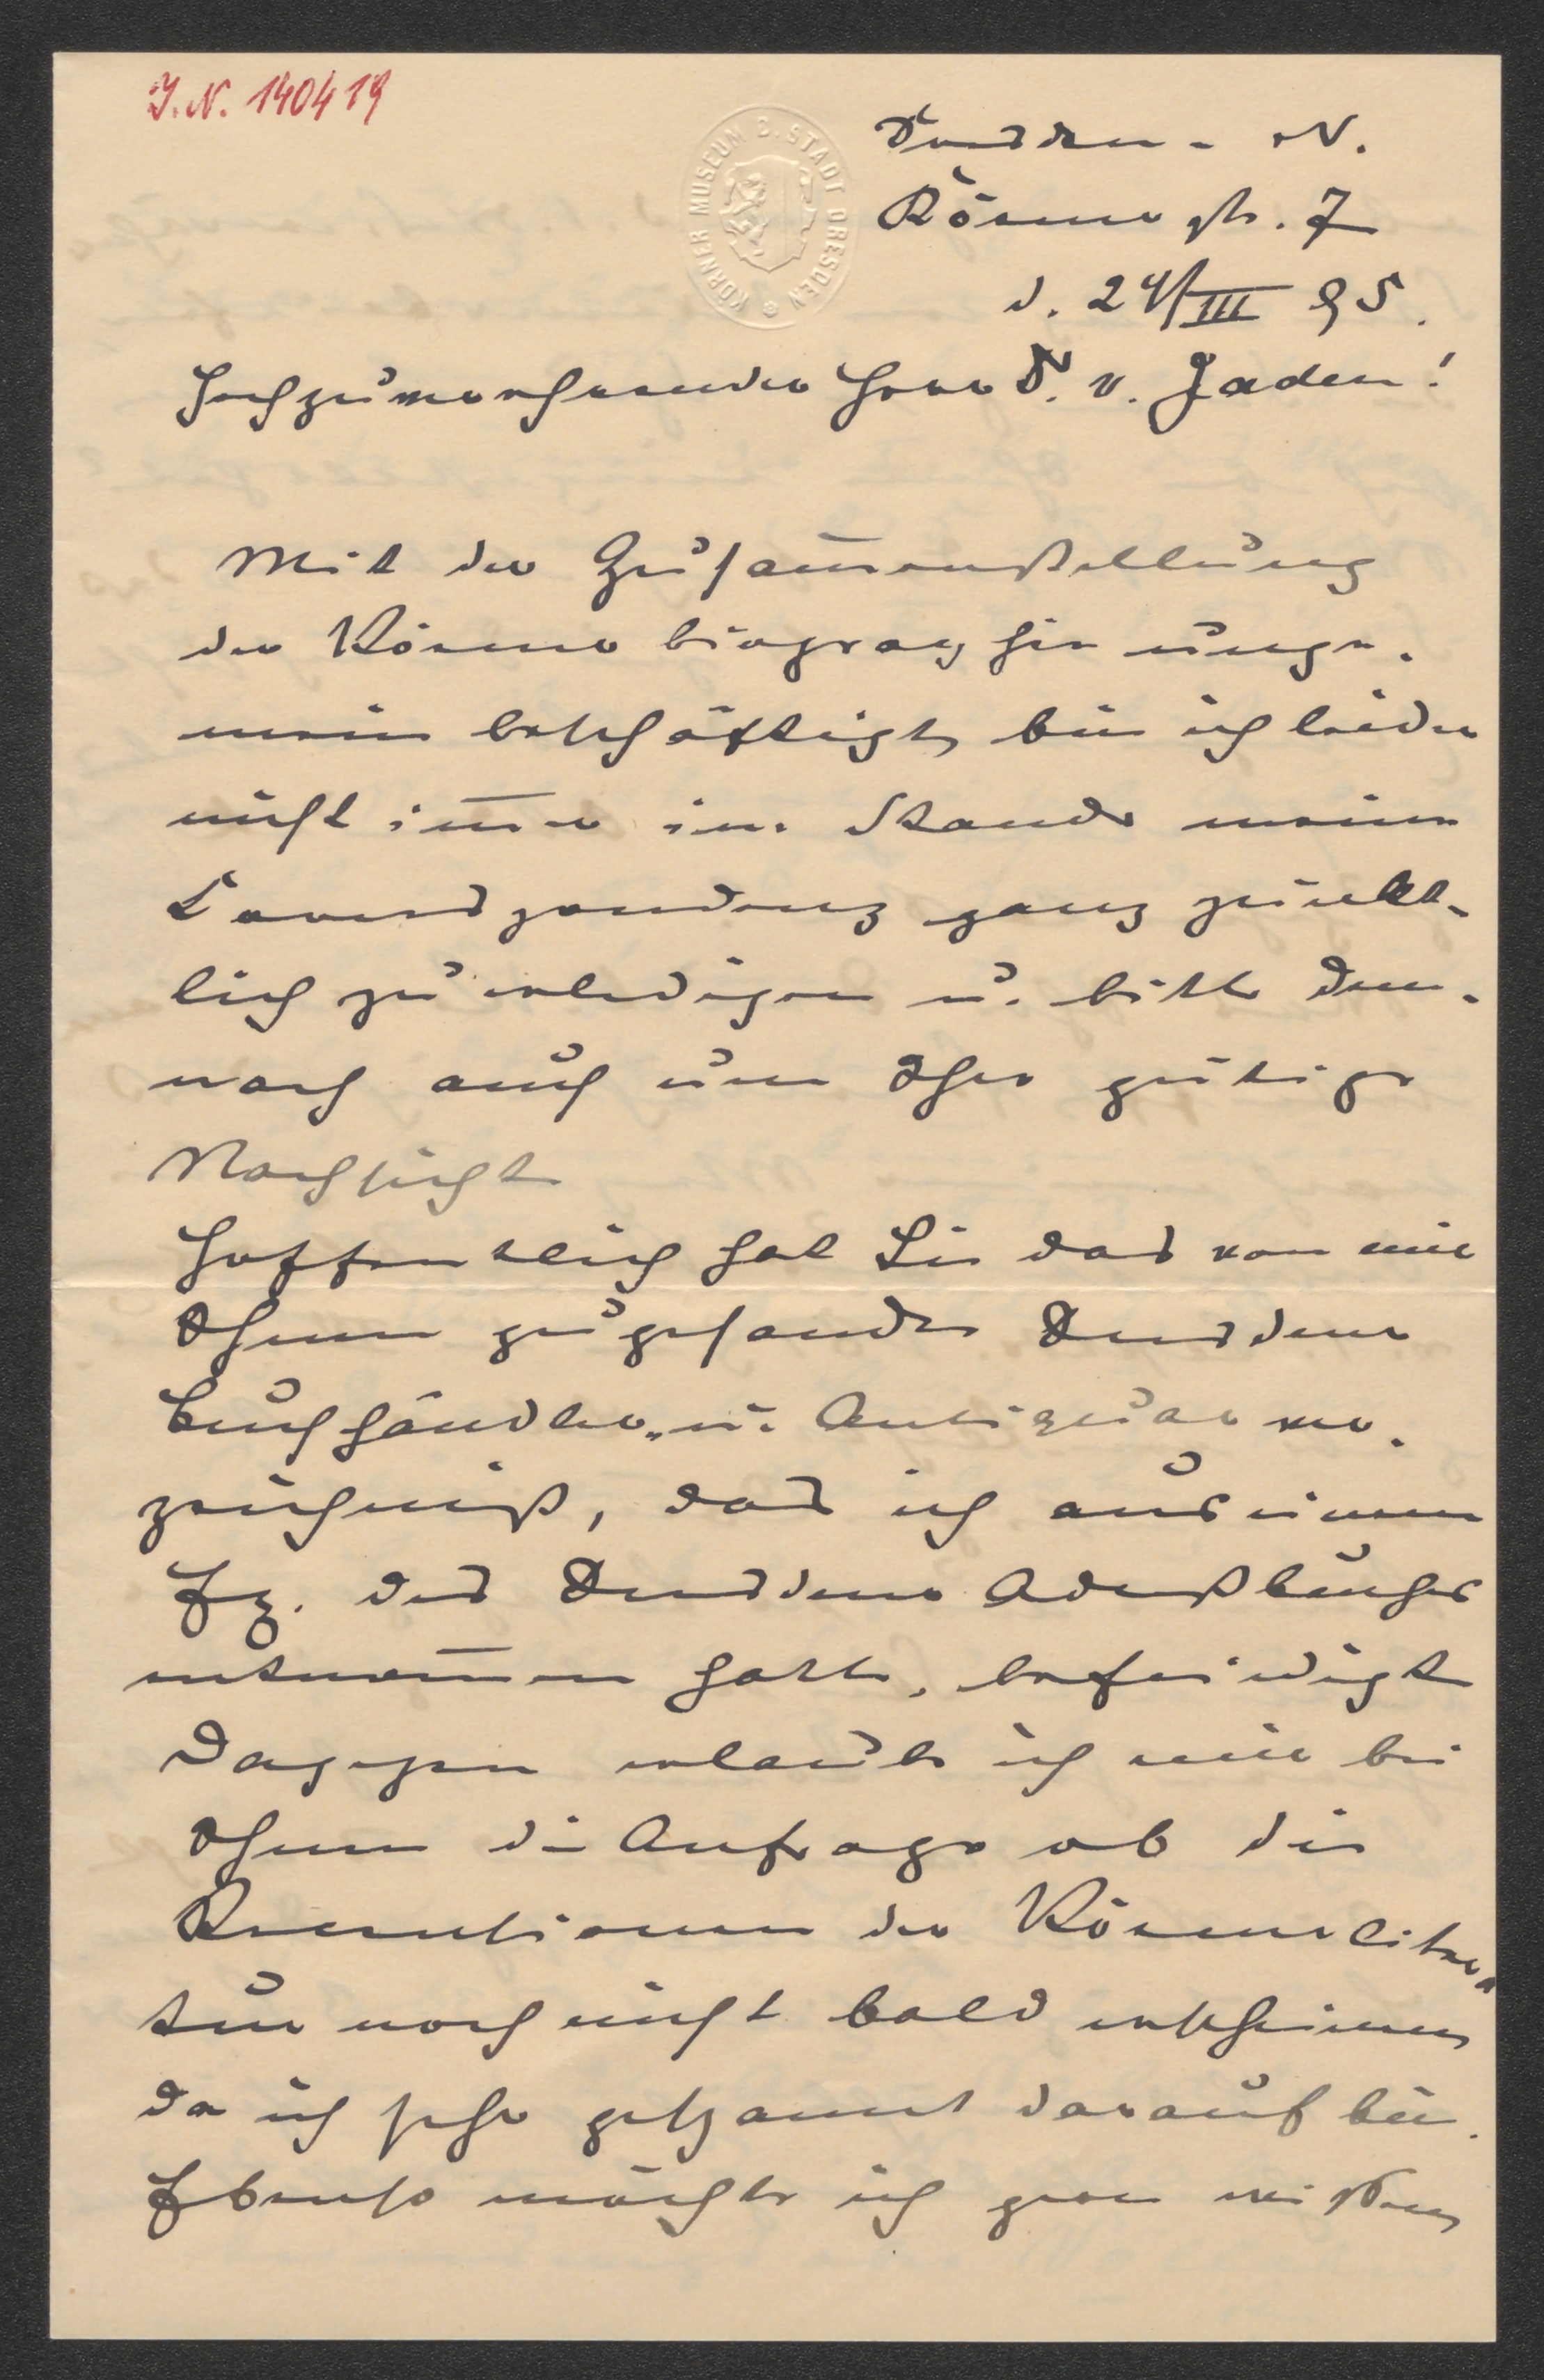 J.N. 140419
KÖRNER MUSEUM D. STADT DRESDEN
Dresden-N.
Körnerstr. 7
d. 24/III 95.
Hochzuverehrender Herr D. v. Jaden!
Mit der Zusam̅enstellung
der Körnerbiographie unge-
mein beschäftigt, bin ich leider
nicht im̅er im Stande meine
Correspondenz ganz pünkt-
lich zu erledigen u. bitte dem-
nach auch um Ihre gütige
Nachsicht
Hoffentlich hat Sie das von mir
Ihnen zugesandte Dresdner
Buchhändler- u. Antiquar ver-
zeichniß, das ich aus einem
Ex. des Dresdner Adreßbuches
entnom̅en hatte, befriedigt
Dagegen erlaube ich mir bei
Ihnen die Anfrage ob die
Recensionen der Körnerlitera-
tur noch nicht bald erscheinen,
da ich sehr gespannt darauf bin.
Ebenso möchte ich gern wissen,